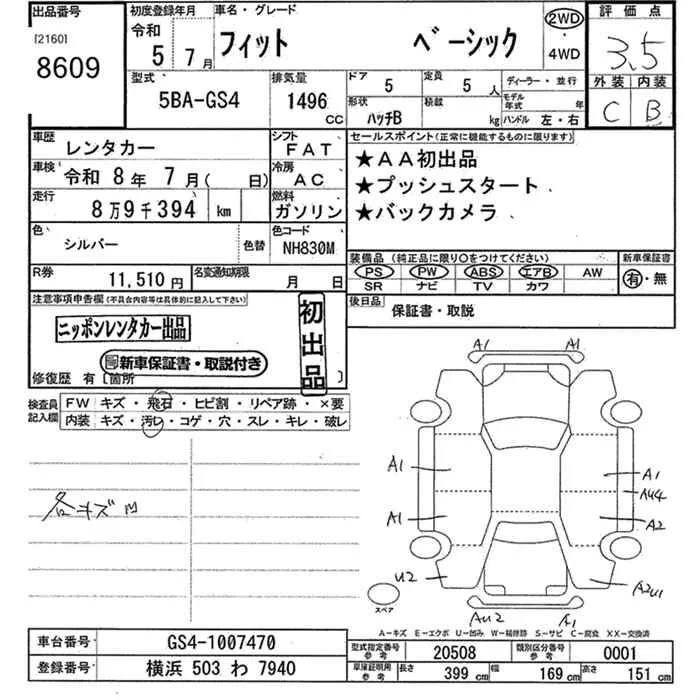 出品番号
[2160]
8609
初度登録年月
令和
5 年 7 月
車名・グレード
フィット ベーシック
2WD
・
4WD
評価点
3.5
外装 内装
C B
型式
5BA-GS4
排気量
1496
CC
ドア
5
定員
5 人
ディーラー・並行
形状
ハッチB
積載
kg
モデル年式 年
ハンドル 左・右
車歴
レンタカー
シフト
FAT
車検
令和 8 年 7 月( 日)
冷房
AC
走行
8万9千394 km
燃料
ガソリン
色
シルバー
色替
色コード
NH830M
R券
11,510 円
名変通知期限
月 日
セールスポイント(正常に機能するものに限ります)
★AA初出品
★プッシュスタート
★バックカメラ
装備品(純正品に限り○をつけてください)
PS PW ABS エアB AW
SR ナビ TV カワ
新車保証書
有・無
後日品
保証書・取説
注意事項申告欄(不具合内容等は具体的に記入して下さい)
ニッポンレンタカー出品
新車保証書・取説付き
初出品
修復歴 有〔箇所 〕
検査員
記入欄
FW キズ・飛石・ヒビ割・リペア跡・×要
内装 キズ・汚レ・コゲ・穴・スレ・キレ・破レ
各キズ
A1 A1
A1 A1
A44
A1 A2
U2
スペア
AU2 A1
A2U1
A-キズ E-エクボ U-凹み W-補修跡 S-サビ C-腐食 XX-交換済
車台番号
GS4-1007470
登録番号
横浜 503 わ 7940
型式指定番号
参考
20508
類別区分番号
参考
0001
車庫証明用
参考
長さ 399 cm 幅 169 cm 高さ 151 cm